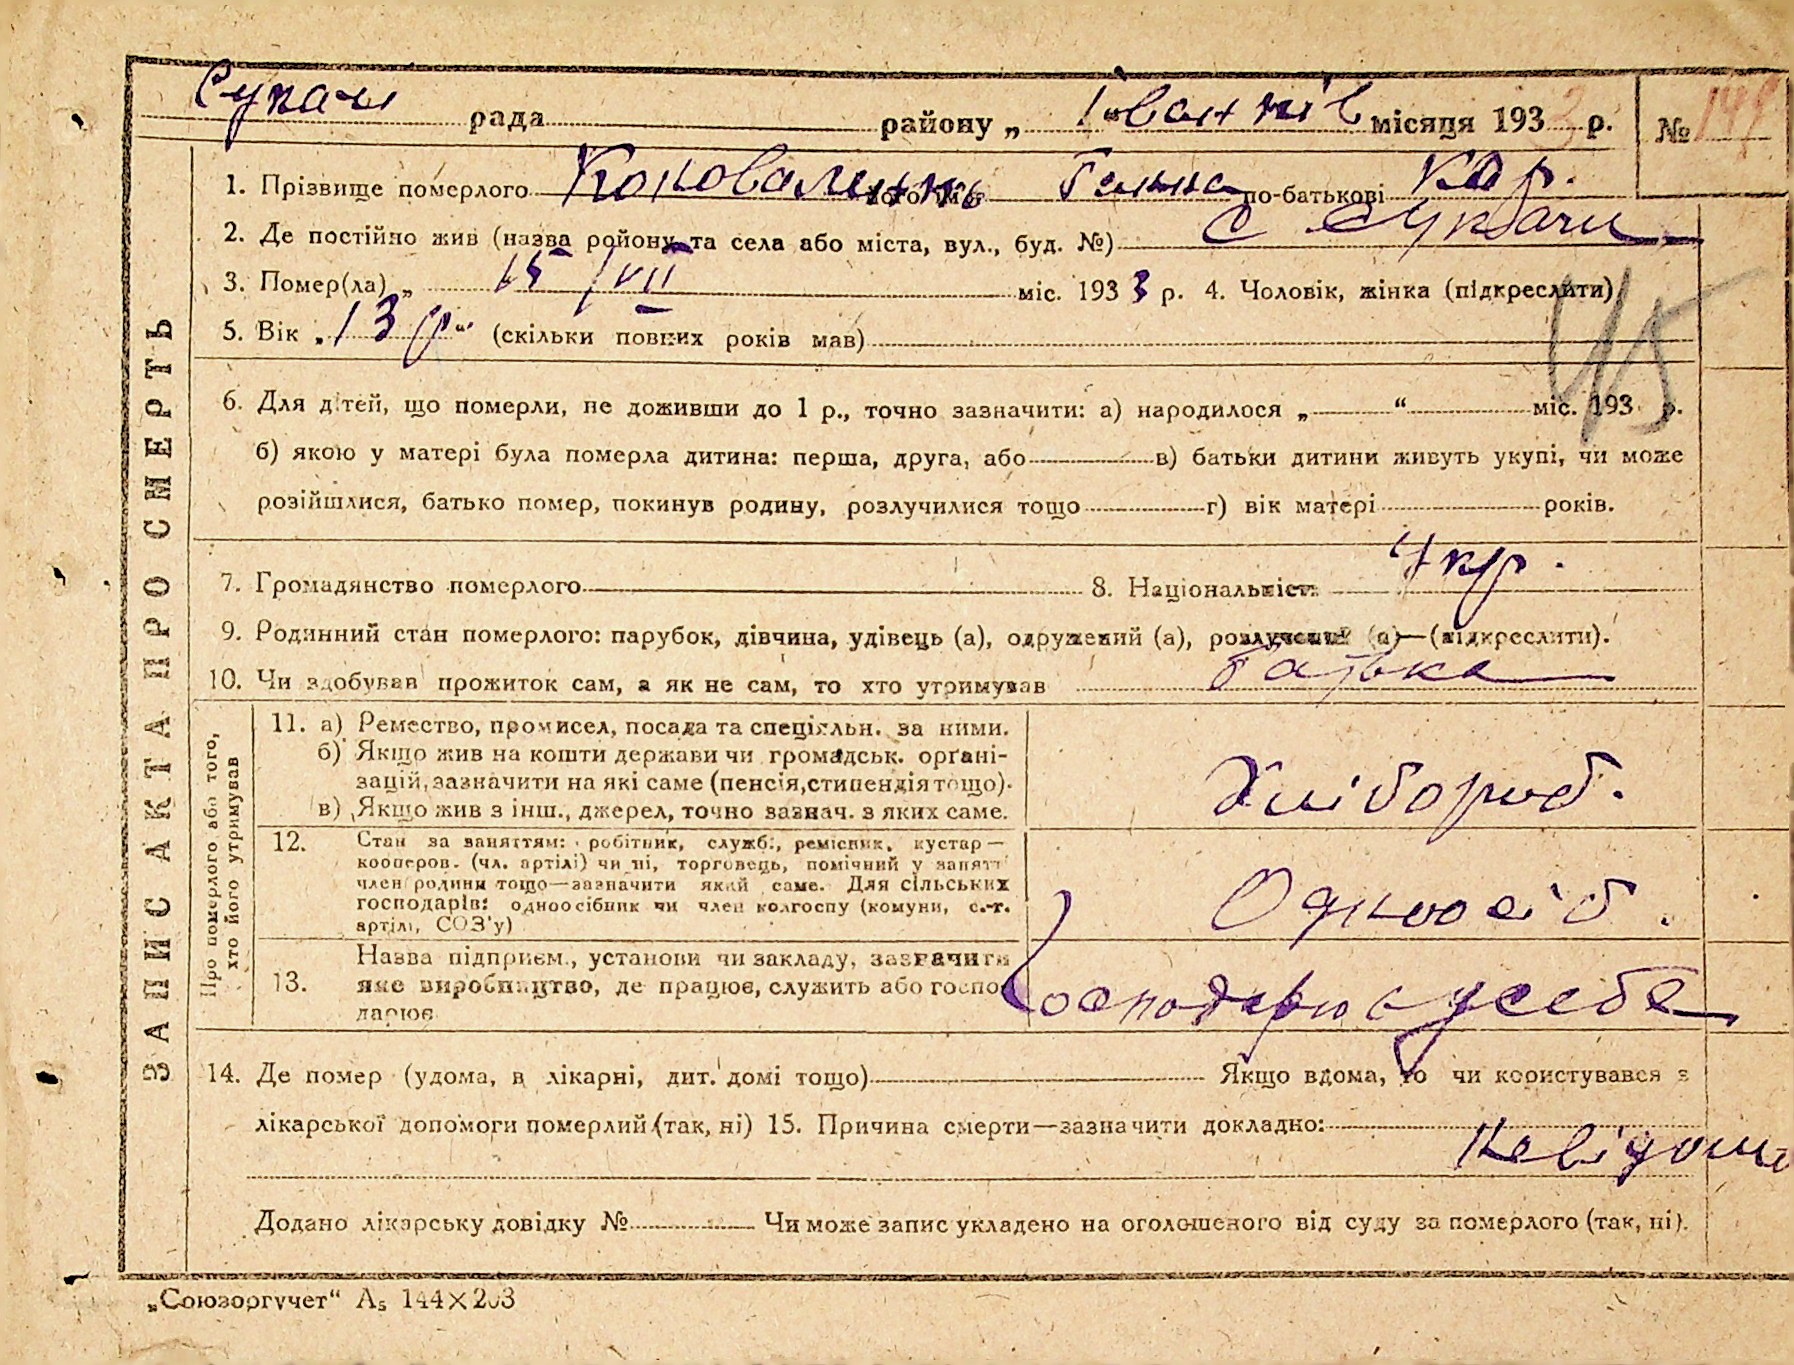 Сукачі рада району „ Іванків місяця 1933 р. № 149
1. Прізвище померлого Коноваленко Ганна по-батькові Кар.
2. Де постійно жив (назва району та села або міста, вул., буд. №) с Сукачі
3. Помер(ла) „ 15/VII міс. 1933 р. 4. Чоловік, жінка (підкреслити)
5. Вік „13 р“ (скільки повних років мав)
6. Для дітей, що померли, не доживши до 1 р., точно зазначити: а) народилося „ “ міс. 193 р.
б) якою у матері була померла дитина: перша, друга, або в) батьки дитини живуть укупі, чи може
розійшлися, батько помер, покинув родину, розлучилися тощо г) вік матері років.
7. Громадянство померлого 8. Національність Укр.
9. Родинний стан померлого: парубок, дівчина, удівець (а), одружений (а), розлучений (а)—(підкреслити).
10. Чи здобував прожиток сам, а як не сам, то хто утримував батько
ЗАПИС АКТА ПРО СМЕРТЬ
Про померлого або того,
хто його утримував
11. а) Ремество, промисел, посада та спеціяльн. за ними.
б) Якщо жив на кошти держави чи громадськ. органі-
зацій, зазначити на які саме (пенсія, стипендія тощо).
в) Якщо жив з інш., джерел, точно зазнач. з яких саме.
Хлібороб.
12. Стан за заняттям: робітник, служб., ремісник, кустар—
кооперов. (чл. артілі) чи ні, торговець, помічний у занятті
член родини тощо—зазначити який саме. Для сільських
господарів: одноосібник чи член колгоспу (комуни, с.-г.
артілі, СОЗ'у)
Одноосіб.
13. Назва підприєм., установи чи закладу, зазначити
яке виробництво, де працює, служить або госпо-
дарює
Господарює у себе
14. Де помер (удома, в лікарні, дит. домі тощо) Якщо вдома, то чи користувався з
лікарської допомоги померлий (так, ні) 15. Причина смерти—зазначити докладно:
Невідомо
Додано лікарську довідку № Чи може запис укладено на оголошеного від суду за померлого (так, ні).
„Союзоргучет“ А₅ 144×203